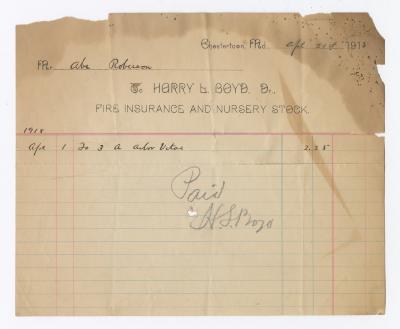 Chestertown, Md. Apl 21st 1918
Mr. Abe Roberson
To HARRY L. BOYD, Dr.,
FIRE INSURANCE AND NURSERY STOCK.
1918
Apl 1 To 3 A Arbor Vitae 2.25
Paid
H.L. Boyd